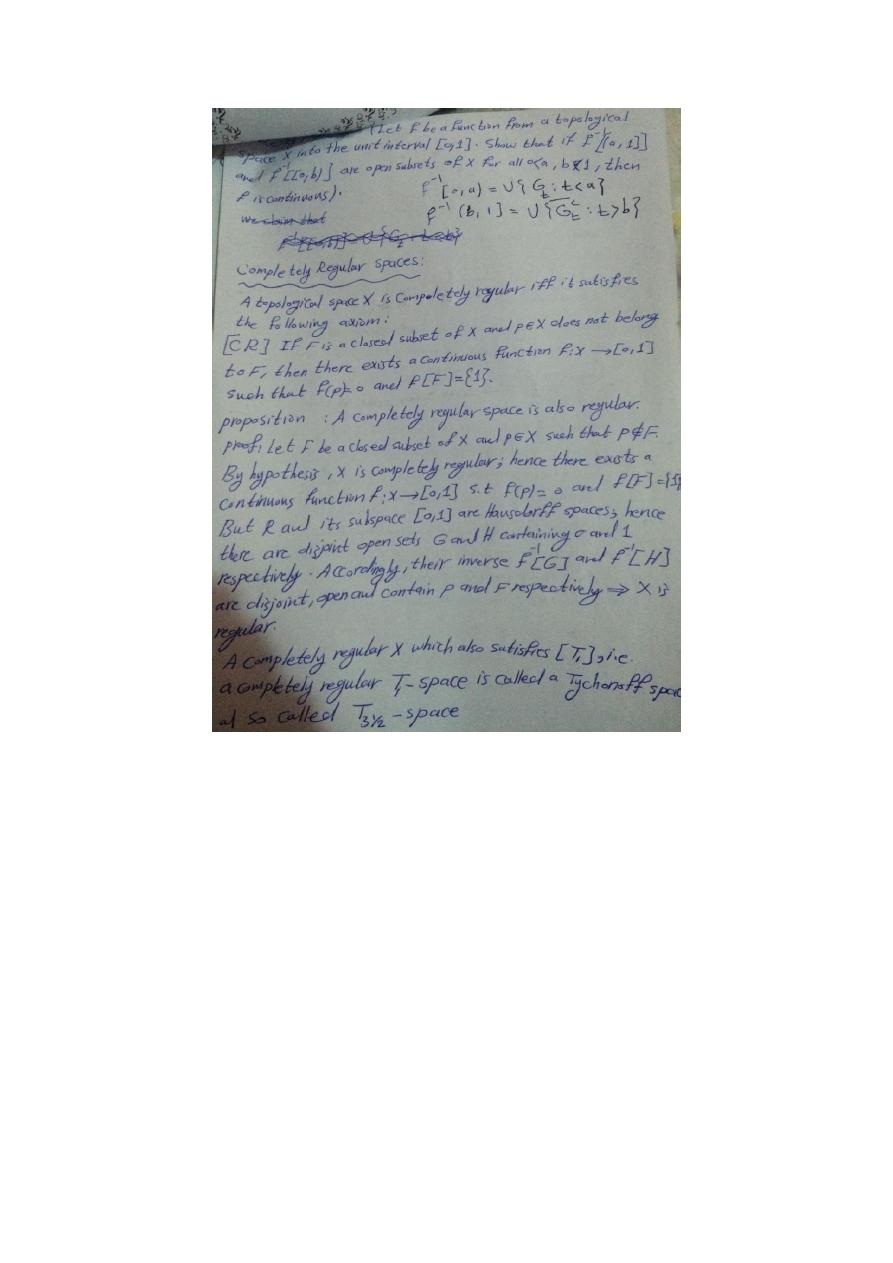 (Let f be a function from a topological
space X into the unit interval [0,1]. Show that if f⁻¹[(a,1]]
and f⁻¹[[0,b)] are open subsets of X for all 0<a, b<1, then
f is continuous).
f⁻¹[0,a) = ∪{G_t : t<a}
we claim that
f⁻¹(b,1] = ∪{G̅_t^c : t>b}
Completely Regular spaces:
A topological space X is Compeletely regular iff it satisfies
the following axiom:
[CR] If F is a closed subset of X and p∈X does not belong
to F, then there exists a continuous function f:X→[0,1]
such that f(p)=0 and f[F]={1}.
proposition : A completely regular space is also regular.
proof: Let F be a closed subset of X and p∈X such that p∉F.
By hypothesis, X is completely regular; hence there exists a
continuous function f:X→[0,1] s.t f(p)=0 and f[F]={1}
But R and its subspace [0,1] are Hausdorff spaces, hence
there are disjoint open sets G and H containing 0 and 1
respectively. Accordingly, their inverse f⁻¹[G] and f⁻¹[H]
are disjoint, open and contain p and F respectively ⇒ X is
regular.
A completely regular X which also satisfies [T₁], i.e.
a completely regular T₁-space is called a Tychonoff spac
al so called T₃½-space